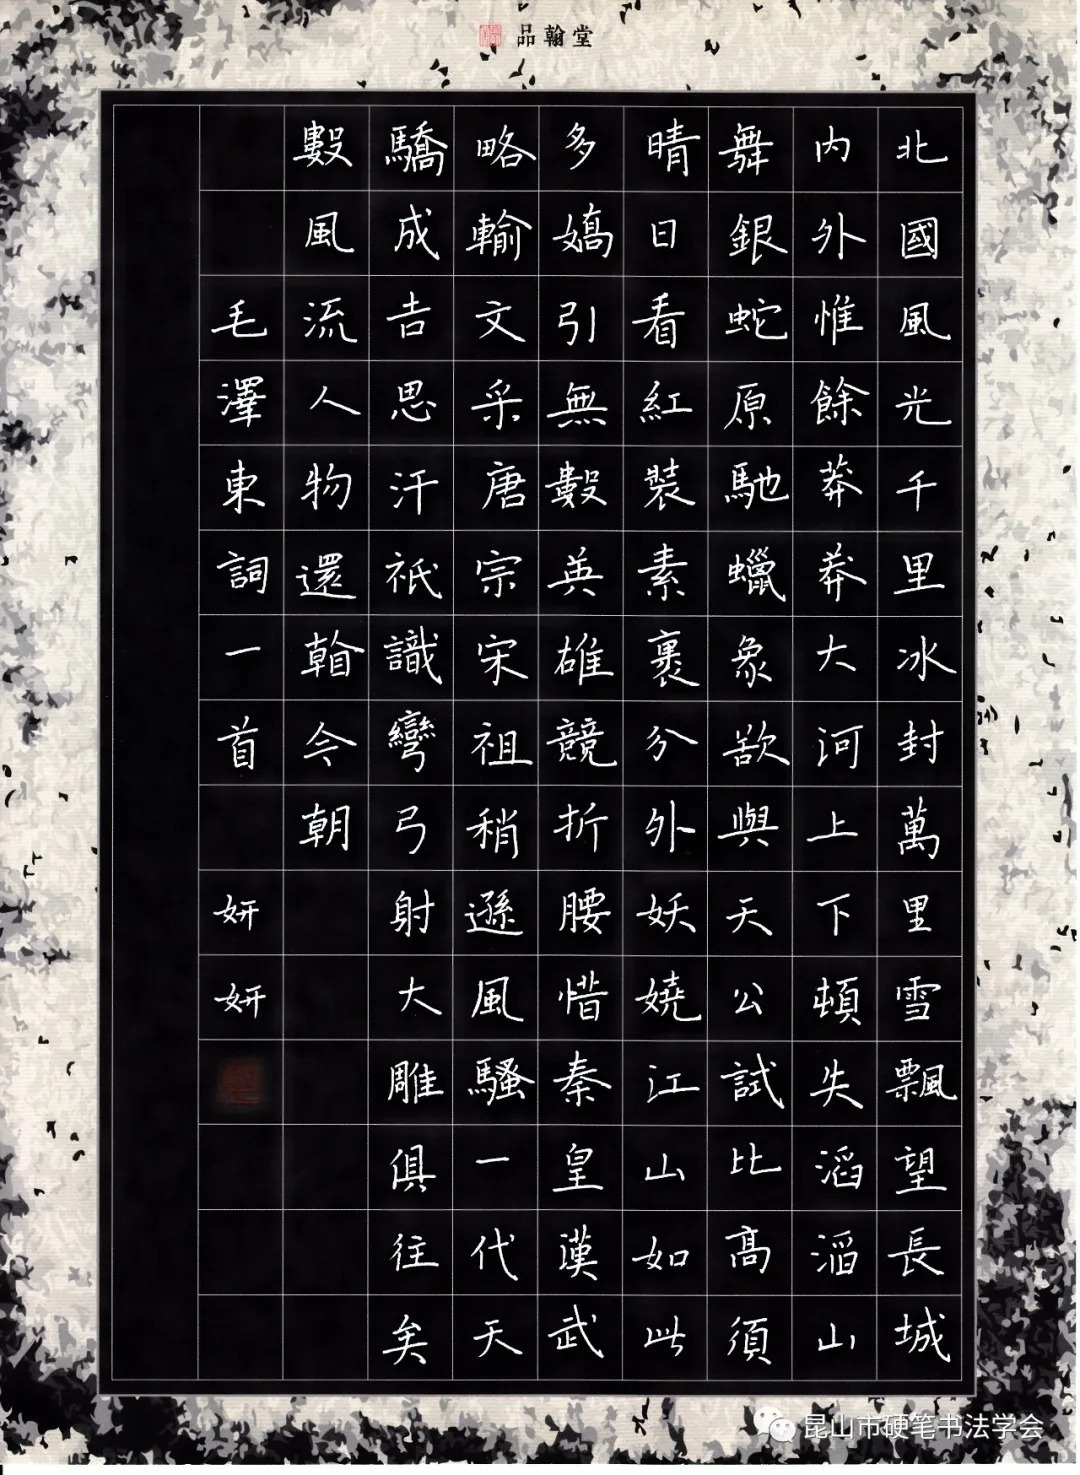 品翰堂
北國風光千里冰封萬里雪飄望長城
内外惟餘莽莽大河上下頓失滔滔山
舞銀蛇原馳蠟象欲與天公試比高須
晴日看紅裝素裹分外妖嬈江山如此
多嬌引無數英雄競折腰惜秦皇漢武
略輸文采唐宗宋祖稍遜風騷一代天
驕成吉思汗祇識彎弓射大雕俱往矣
數風流人物還看今朝
毛澤東詞一首 妍妍
昆山市硬笔书法学会